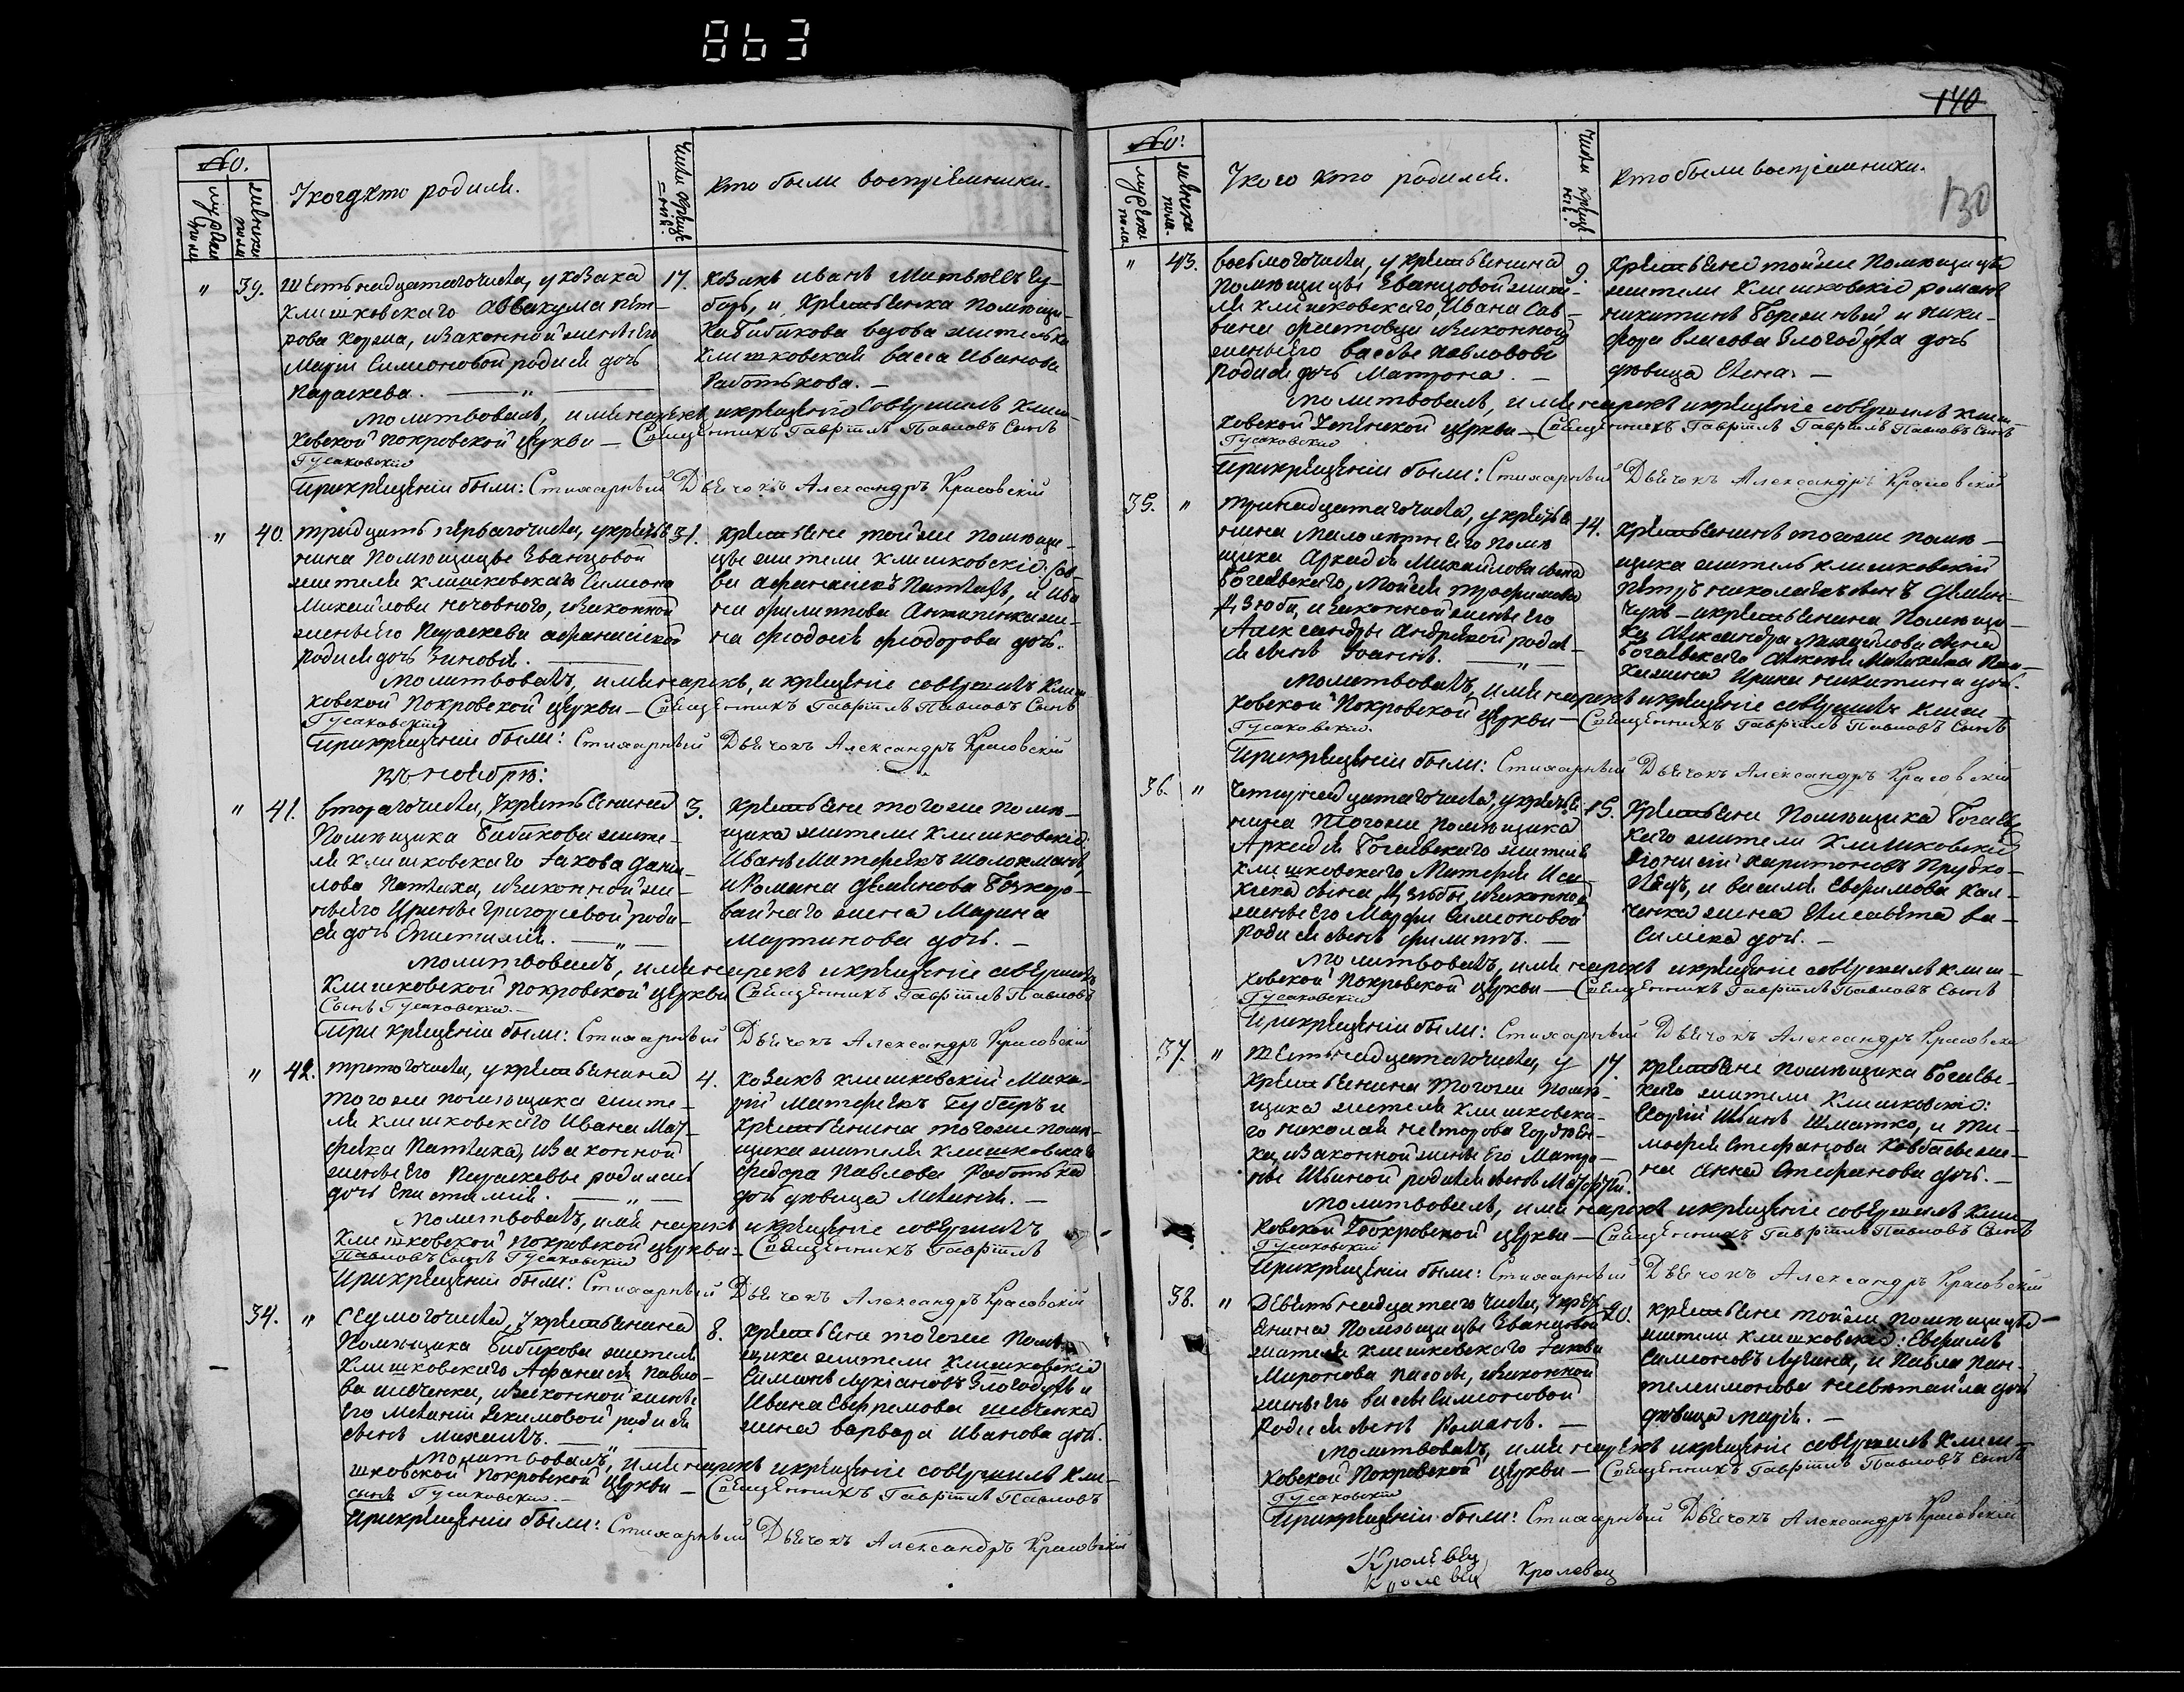 863
No.
мужска пола
женска пола
У кого кто родился.
Число креще-
ній.
Кто были воспріемники.
"
39.
Шестьнадцатагочисла, у козака
Клишковскаго Аввакума Пет-
рова , изаконной жены его
Маріи Симеоновой родися дочь
Параскева. — " —
17.
Козакъ Иванъ Гу-
барь, и крестьянка помѣщи-
ка Бибикова вдова жителька
Клишковская Васса Иванова
Работькова. —
Молитвовалъ, имя нарекъ, икрещеніе совершилъ Клиш-
ковской Покровской церкви — Священникъ Гавріилъ Павловъ Сынъ
Гусаковскій
Прикрещеніи были: Стихарный Дьячокъ Александръ Красовскій
"
40.
Тридцать перьвагочисла, укрестья
нина помѣщицы Еванцовой
жителя Клишковскаго Симеона
Михайлова , изаконной
жены его Параскевы Афанасіевой
родися дочь Зиновія. —
31.
Крестьяне тойже помѣщи-
цы жители Клишковскіе: Сав-
ва , и Ива
на Филиппова же-
на Феодосія Феодорова дочь.
Молитвовалъ, имя нарекъ, и крещеніе совершилъ Клиш-
ковской Покровской церкви — Священникъ Гавріилъ Павловъ Сынъ
Гусаковскій
Прикрещеніи были: Стихарный Дьячокъ Александръ Красовскій
Въ Ноябрѣ:
"
41.
Второгочисла, Укрестьянина
Помѣщика Бибикова жите-
ля Клишковскаго Іакова Дани-
лова , изаконной же-
ны его Ирины Григоріевой роди-
ся дочь Епистимія. — " —
3.
Крестьяне тогоже помѣ-
щика жители Клишковскіе:
Иванъ ,
и Романа
жена Марина
Мартинова дочь. —
Молитвовалъ, имя нарекъ икрещеніе совершилъ
Клишковской Покровской церкви Священникъ Гавріилъ Павловъ
Сынъ Гусаковскій. —
При крещеніи были: Стихарный Дьячокъ Александръ Красовскій
"
42.
Третогочисла, укрестьянина
тогоже помѣщика жите-
ля Клишковскаго Ивана Мат-
фѣева , изаконной
жены его Параскевы родилась
дочь Епистимія. — " —
4.
Козакъ Клишковскій Мака-
рій Матфѣевъ Губаръ и
крестьянина тогоже помѣ-
щика жителя Клишковскаго
Федора Павлова Работька
дочь дѣвица Меланія. —
Молитвовалъ, имя нарекъ икрещеніе совершилъ
Клишковской Покровской церкви — Священникъ Гавріилъ
Павловъ Сынъ Гусаковскій
Прикрещеніи были: Стихарный Дьячокъ Александръ Красовскій
34.
"
Седмогочисла, Укрестьянина
Помѣщика Бибикова жителя
Клишковскаго Афанасія Павло-
ва Шевченка, изаконной жены
его Меланіи Екимовой родися
сынъ Михаилъ. — " —
8.
Крестьяне тогоже Помѣ-
щика жители Клишковскіе
Симонъ Лукіановъ Злогодухъ и
Ивана Евфремова Шевченка
жена Варвара Иванова дочь.
Молитвовалъ, имя нарекъ икрещеніе совершилъ Кли-
шковской Покровской церкви — Священникъ Гавріилъ Павловъ
сынъ Гусаковскій. —
Прикрещеніи были: Стихарный Дьячокъ Александръ Красовскій
140
130
No:
мужска пола
женска пола.
У кого кто родился.
Число креще-
ній.
Кто были воспріемники.
"
43.
Восьмогочисла, у крестьянина
помѣщицы Еванцовой жите-
ля Клишковскаго, Ивана Сав-
вина , изаконной
жены его Вассы Павловой
родися дочь Матрона. —
9.
Крестьяне тойже Помѣщицы
жители Клишковскіе Романъ
Никитинъ и Ники-
фора Власова Злогодуха дочь
дѣвица Елена. —
Молитвовалъ, имя нарекъ икрещеніе совершилъ Клиш-
ковской Успенской церкви — Священникъ Гавріилъ Гавріилъ Павловъ Сынъ
Гусаковскій
Прикрещеніи были: Стихарный Дьячокъ Александръ Красовскій
35.
"
Тринадцатагочисла, у крестья
нина малолѣтняго помѣ
щика Аркадія Михайлова сына
Богаевскаго, Моисея Трофимова
Дзюбы, изаконной жены его
Александры Андреевой родил-
ся сынъ Іоаннъ. — " —
14.
Крестьянинъ тогоже помѣ —
щика житель Клишковскій
Петръ Николаевъ сынъ Демен-
чукъ — икрестьянина Помѣщи-
ка Александра Михайлова сына
Богаевскаго
Ирина Никитина дочь.
Молитвовалъ, имя нарекъ икрещеніе совершилъ Клиш —
ковской Покровской церкви — Священникъ Гавріилъ Павловъ Сынъ
Гусаковскій.
Прикрещеніи были: Стихарный Дьячокъ Александръ Красовскій
36.
"
Четырнадцатагочисла, укрестья
нина тогоже помѣщика
Аркадія Богаевскаго жителя
Клишковскаго Матфея Иса-
кіева сына Дзюбы, изаконной
жены его Марфы Симоновой
родися сынъ Филиппъ. —
15.
Крестьяне Помѣщика Богаев
скаго жители Клишковскіе
Діонисій Харитоновъ
, и Василія Евфимова Каль-
ченка жена Елисавета Ва-
силіева дочь. —
Молитвовалъ, имя нарекъ икрещеніе совершилъ Клиш-
ковской Покровской церкви — Священникъ Гавріилъ Павловъ Сынъ
Гусаковскій
Прикрещеніи были: Стихарный Дьячокъ Александръ Красовскій
37.
"
Шестьнадцатагочисла, у
крестьянина тогоже помѣ-
щика жителя Клишковска-
го Николая Несторова Гордѣен-
ка, изаконной жены его Матро-
ны Ильиной родился сынъ Матфей.
17.
Крестьяне помѣщика Богаевс-
каго жители Клишковскіе:
Георгій Ильинъ Шматко, и Ти-
мофея Стефанова же-
на Анна Стефанова дочь. —
Молитвовалъ, имя нарекъ икрещеніе совершилъ Клиш
ковской Покровской церкви — Священникъ Гавріилъ Павловъ Сынъ
Гусаковскій
Прикрещеніи были: Стихарный Дьячокъ Александръ Красовскій
38.
"
Девятьнадцатаго числа, Укресть
янина помѣщицы Еванцовой
жителя Клишковскаго Іакова
Миронова , изаконной
жены его Вассы Симоновой
родися сынъ Романъ. —
20.
Крестьяне тойже помѣщицы —
жители Клишковскіе: Евфимъ
Симеоновъ Лучина, и Павла Пан-
телимонова дочь
дѣвица Марія. —
Молитвовалъ, имя нарекъ икрещеніе совершилъ Клиш-
ковской Покровской церкви — Священникъ Гавріилъ Павловъ Сынъ
Гусаковскій
Прикрещеніи были: Стихарный Дьячокъ Александръ Красовскій
Кролевец
Кролевец Кролевец